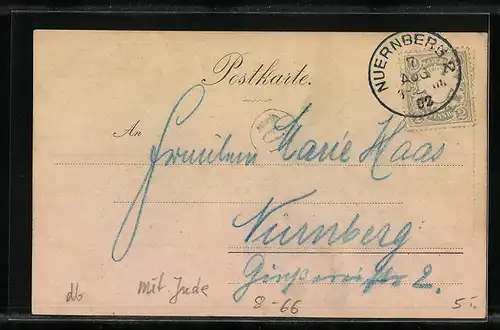 NUERNBERG 2.
7
AUG
02
Postkarte.
An
Fräulein Marie Haas
Nürnberg
2.
db mit Jude 8-66 5.-